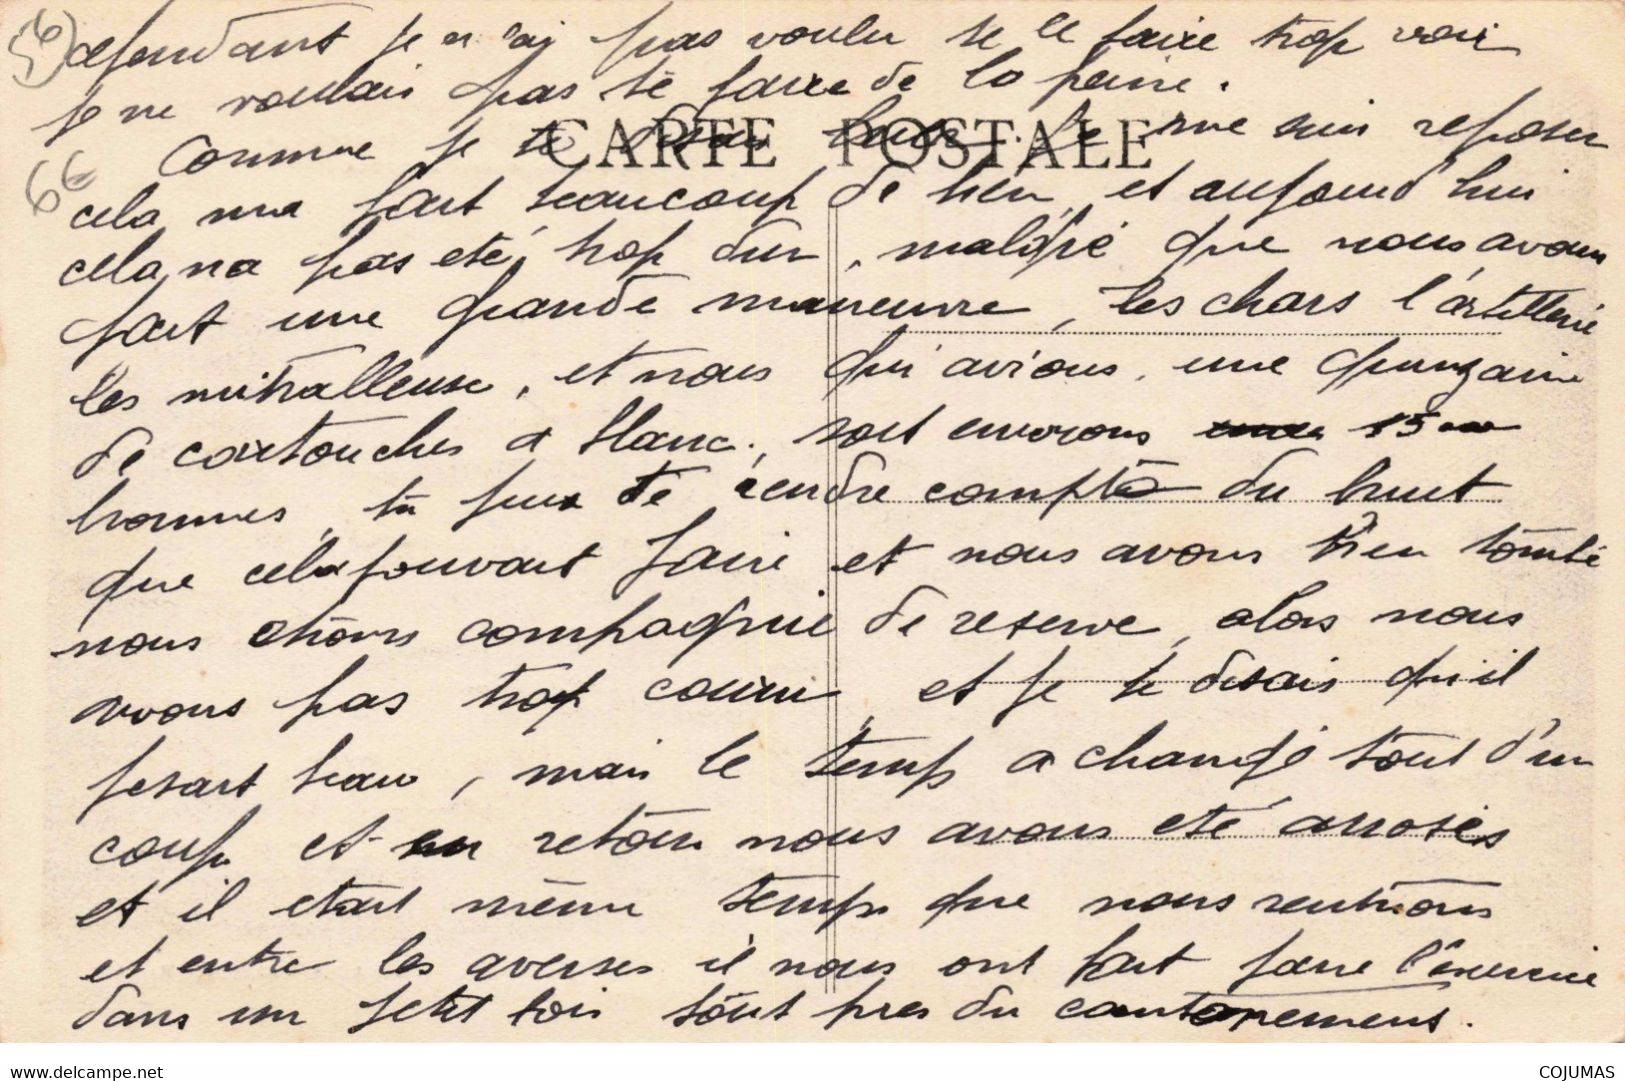 cependant je n'ai pas voulu te le faire trop voir
je ne voulais pas te faire de la peine.
CARTE POSTALE
Comme je te disais je me suis reposer
66
cela ma fait beaucoup de bien, et aujourd'hui
cela, na pas eté, trop dur, malgré que nous avons
fait une grande maneuvre, les chars l'artillerie
les mitralleuse, et nous qui avions, une quinzaine
de cartouches a blanc, soit environs 15
hommes, tu peux te rendre compte du bruit
que cela pouvait faire et nous avons bien tombé
nous etions compagnie de reserve, alors nous
avons pas trop couru, et je te disais qu'il
fesait beau, mais le temp a changé tout d'un
coup et en retour nous avons eté arrosés
et il etait même temps que nous rentrions
et entre les averses il nous ont fait faire l'exercice
dans un petit bois tout pres du cantonnement.
delcampe.net
COJUMAS